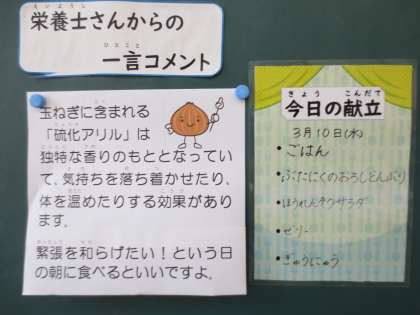 栄養士さんからの
一言コメント
玉ねぎに含まれる
「硫化アリル」は
独特な香りのもととなってい
て、気持ちを落ち着かせたり、
体を温めたりする効果があり
ます。
緊張を和らげたい！という日
の朝に食べるといいですよ。
今日の献立
3月10日(水)
・ごはん
・ぶたにくのおろしどんぶり
・ほうれんそうサラダ
・ゼリー
・ぎゅうにゅう